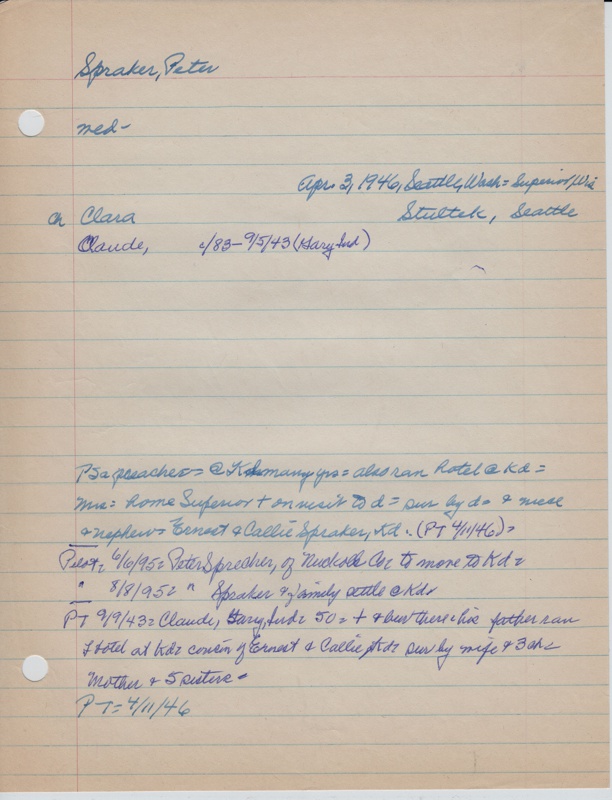 Spraker, Peter
med-
Apr. 3, 1946, Seattle, Wash = Superior, Wis
ch Clara Stultek, Seattle
Claude, c/83-9/5/43 (Gary Ind)
P a preacher = @ Kd many yrs = also ran hotel @ Kd =
Mrs = home Superior + on visit to d = sur by d & niece
& nephew = Ernest & Callie Spraker, Kd. (PT 4/11/46) =
Pilot, 6/6/95 = Peter Sprecher, of Nuckolls Co, to move to Kd =
" 8/8/95 = " Spraker & family settle @ Kd
PT 9/9/43 = Claude, Gary, Ind = 50 = + & bur there = his father ran
Hotel at Kd = cousin of Ernest & Callie, Kd = sur by wife & 3 ch =
Mother & 5 sisters =
PT = 4/11/46